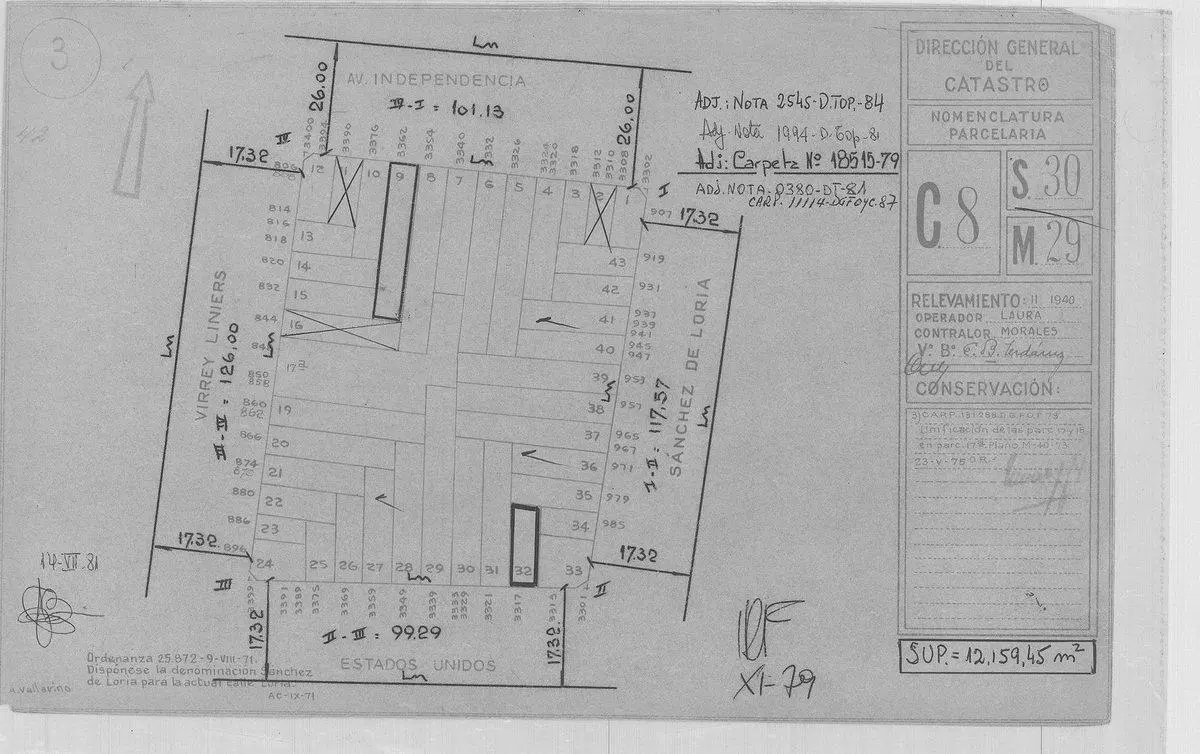 3
42
Lm
26.00
AV. INDEPENDENCIA
IV-I = 101.13
26.00
3400
3394
3390
3376
3362
3354
3340
3332
3326
3324
3320
3318
3312
3310
3308
3302
IV
17.32
896
Lm
I
17.32
907
12
1
10
9
8
7
6
5
4
3
2
1
814
816
818
820
832
844
850
858
860
862
866
874
870
880
886
896
13
14
15
16
17a
19
20
21
22
23
24
25
26
27
28
29
30
31
32
33
34
35
36
37
38
39
40
41
42
43
919
931
937
939
941
945
947
953
957
965
967
971
979
985
VIRREY LINIERS
III-IV = 126,00
Lm
Lm
SÁNCHEZ DE LORIA
I-II = 117,57
Lm
Lm
17.32
17.32
III
II
Lm
3395
3391
3389
3375
3369
3359
3349
3339
3333
3329
3321
3317
3313
3301
17.32
II-III = 99.29
17.32
ESTADOS UNIDOS
Lm
14-VII-81
Ordenanza 25.872-9-VIII-71.
Dispónese la denominación Sánchez
de Loria para la actual calle Loria.
AC-IX-71
A. Vallarino
XI-79
ADJ.: NOTA 2545-D.TOP.-84
Adj. Nota 1994-D.Top-81
Adj: Carpeta Nº 18515-79
ADJ. NOTA. 0380-DT-81
CARP. 11114-DGFOyC.87
DIRECCIÓN GENERAL
DEL
CATASTRO
NOMENCLATURA
PARCELARIA
C. 8
S. 30
M. 29
RELEVAMIENTO: II 1940
OPERADOR LAURA
CONTRALOR MORALES
Vº Bº
CONSERVACIÓN:
Unificación de las parc. 17 y 18
en parc. 17a Plano M-40-73
23-V-75
SUP. = 12,159,45 m²